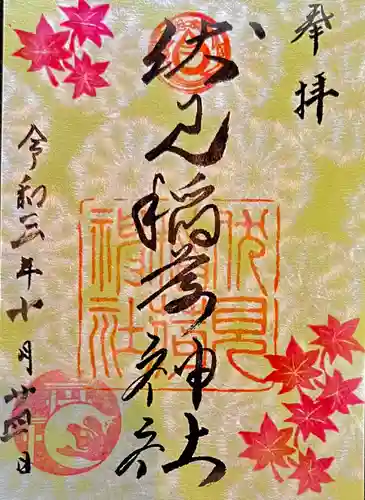 奉拝
伏見稲荷神社
伏見稲荷神社
令和三年十月廿四日